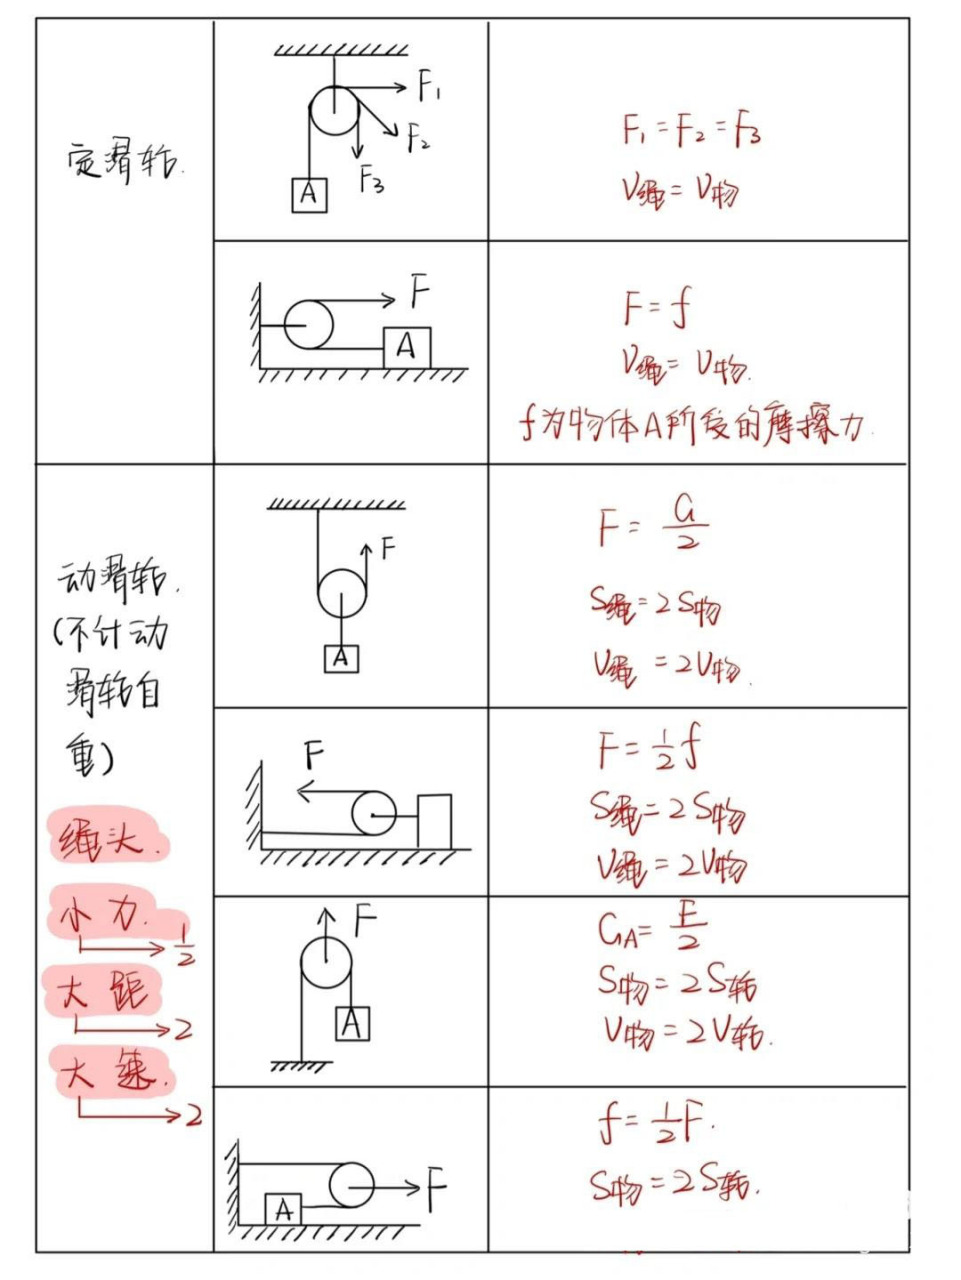 定滑轮.
F₁
F₂
F₃
A
F₁=F₂=F₃
V绳=V物
F
A
F=f
V绳=V物.
f为物体A所受的摩擦力.
动滑轮.
(不计动
滑轮自
重)
绳头.
小力.
1/2
大距
2
大速.
2
F
A
F=G/2
S绳=2S物
V绳=2V物.
F
F=1/2f
S绳=2S物
V绳=2V物
F
A
G_A=F/2
S物=2S轮
V物=2V轮.
F
A
f=1/2F.
S物=2S轮.